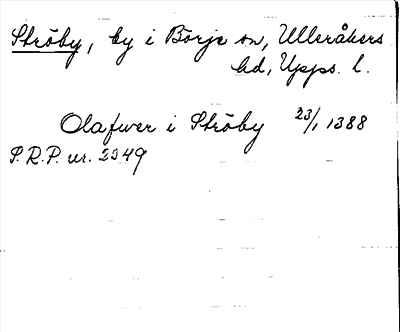 Ströby, by i Börje sn, Ulleråkers
hd, Upps. l.
Olafwer i Ströby 23/1 1388
S.R.P. nr. 2349